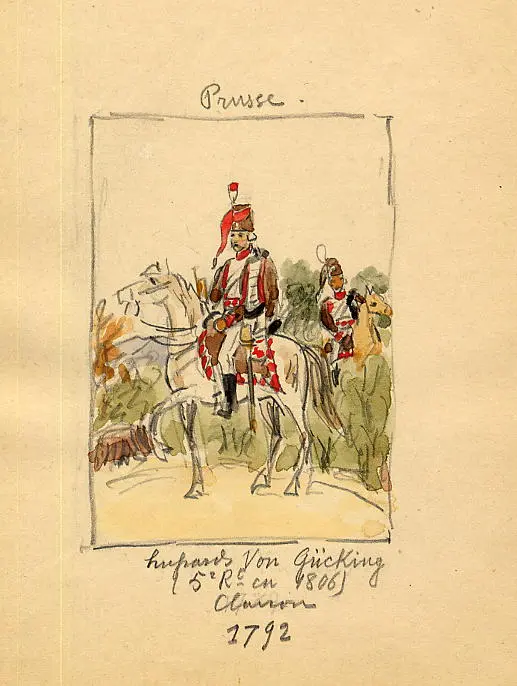 Prusse.
hussards Von Gücking
(5e Rt en 1806)
Clairon
1792